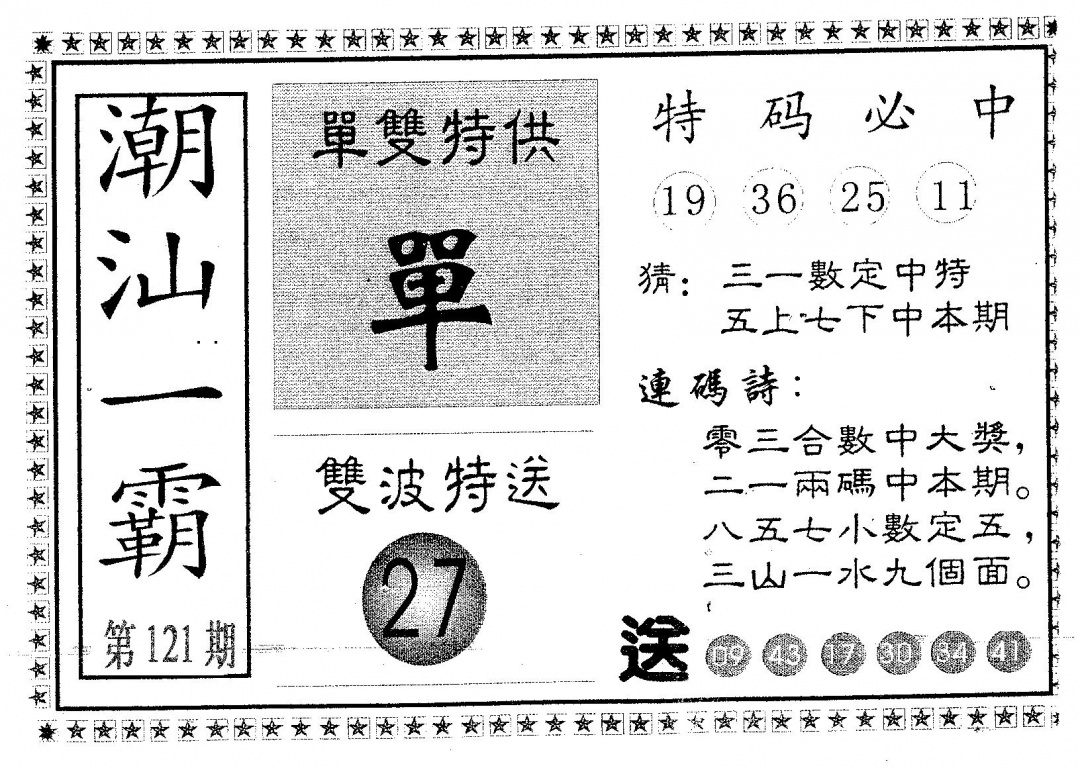 潮汕一霸
第121期
單雙特供
單
雙波特送
27
特码必中
19 36 25 11
猜：三一數定中特
五上七下中本期
連碼詩：
零三合數中大獎，
二一兩碼中本期。
八五七小數定五，
三山一水九個面。
送 09 43 17 30 34 41